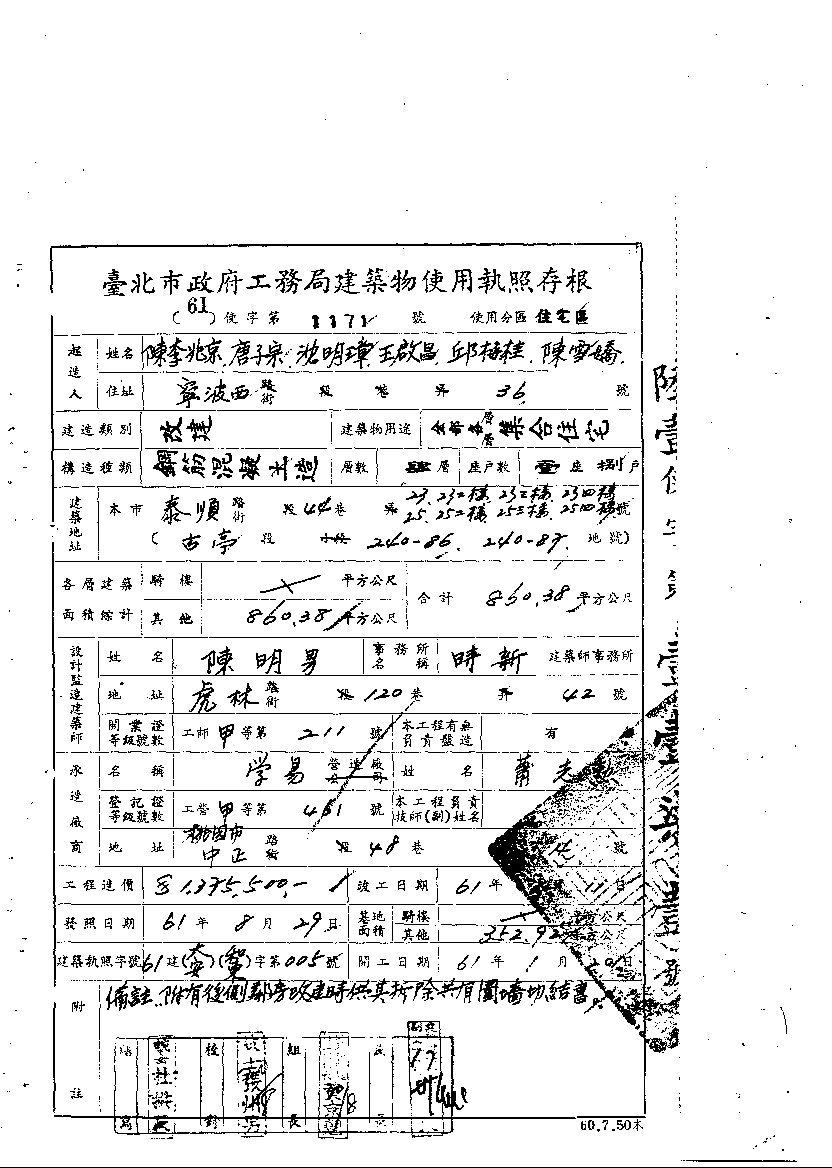 臺北市政府工務局建築物使用執照存根
(61)使字第 1171 號 使用分區 住宅區
起造人 姓名 陳李兆京.唐子宗.沈明璋.王啟昌.邱梅桂.陳雪嬌.
住址 寧波西 路街 段 巷 弄 36 號
建造類別 改建 建築物用途 全部各層 集合住宅
構造種類 鋼筋混凝土造 層數 層 座户數 座 捌戶
建築地址 本市 泰順 路街 段 44巷 弄 23.23二樓.23三樓.23四樓
25.25二樓.25三樓.25四樓 號
( 古亭 段 小段 240-86. 240-87. 地號)
各層建築面積總計 騎樓 平方公尺 合計 860.38 平方公尺
其他 860.38 平方公尺
設計監造建築師 姓名 陳明男 事務所名稱 時新 建築師事務所
地址 虎林 路街 段 120 巷 弄 42 號
開業證等級號數 工師 甲 等第 211 號 本工程有無負責監造 有
承造廠商 名稱 学易 營造廠公司 姓名 蕭
登記證等級號數 工營 甲 等第 461 號 本工程負責技師(副)姓名
地址 桃園市中正 路街 段 48 巷 號
工程造價 1,375,500,- 竣工日期 61 年 11 日
發照日期 61 年 8 月 29 日 基地面積 騎樓 平方公尺
其他 352.92 平方公尺
建築執照字號 61建()()字第005號 開工日期 61 年 1 月 20 日
附註 備註.附有後側鄰房改建時供其拆除共有圍墻切結書.
填寫 校對 組長 長
60.7.50本
陸壹使字第壹壹柒壹號